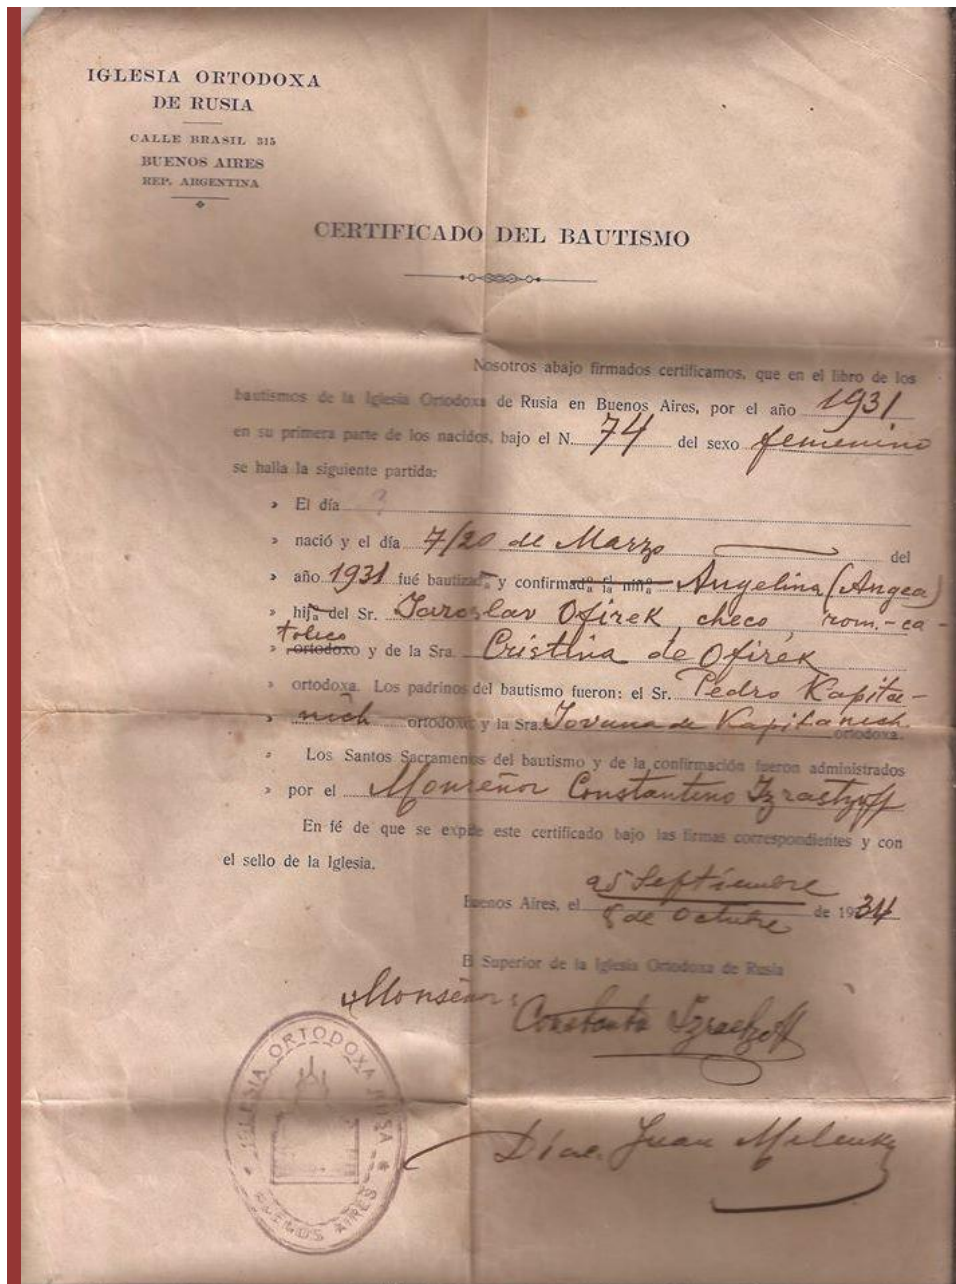 IGLESIA ORTODOXA
DE RUSIA
CALLE BRASIL 315
BUENOS AIRES
REP. ARGENTINA
CERTIFICADO DEL BAUTISMO
Nosotros abajo firmados certificamos, que en el libro de los
bautismos de la Iglesia Ortodoxa de Rusia en Buenos Aires, por el año 1931
en su primera parte de los nacidos, bajo el N. 74 del sexo femenino
se halla la siguiente partida:
» El día ?
» nació y el día 7/20 de Marzo del
» año 1931 fué bautizada y confirmad o/a el/la niñ o/a Angelina (Angea)
» hij o/a del Sr. Jaroslav Ofirek, checo, rom.-ca-
tolico
» ortodoxo y de la Sra. Cristina de Ofirek
» ortodoxa. Los padrinos del bautismo fueron: el Sr. Pedro Kapita-
» nich ortodoxo y la Sra. Jovana de Kapitanich ortodoxa.
» Los Santos Sacramenos del bautismo y de la confirmación fueron administrados
» por el Monseñor Constantino Izrastzoff
En fé de que se expide este certificado bajo las firmas correspondientes y con
el sello de la Iglesia.
25 Septiembre
Buenos Aires, el 8 de Octubre de 1934
El Superior de la Iglesia Ortodoxa de Rusia
Monseñor:
Izrastzoff
IGLESIA ORTODOXA RUSA
BUENOS AIRES
Juan